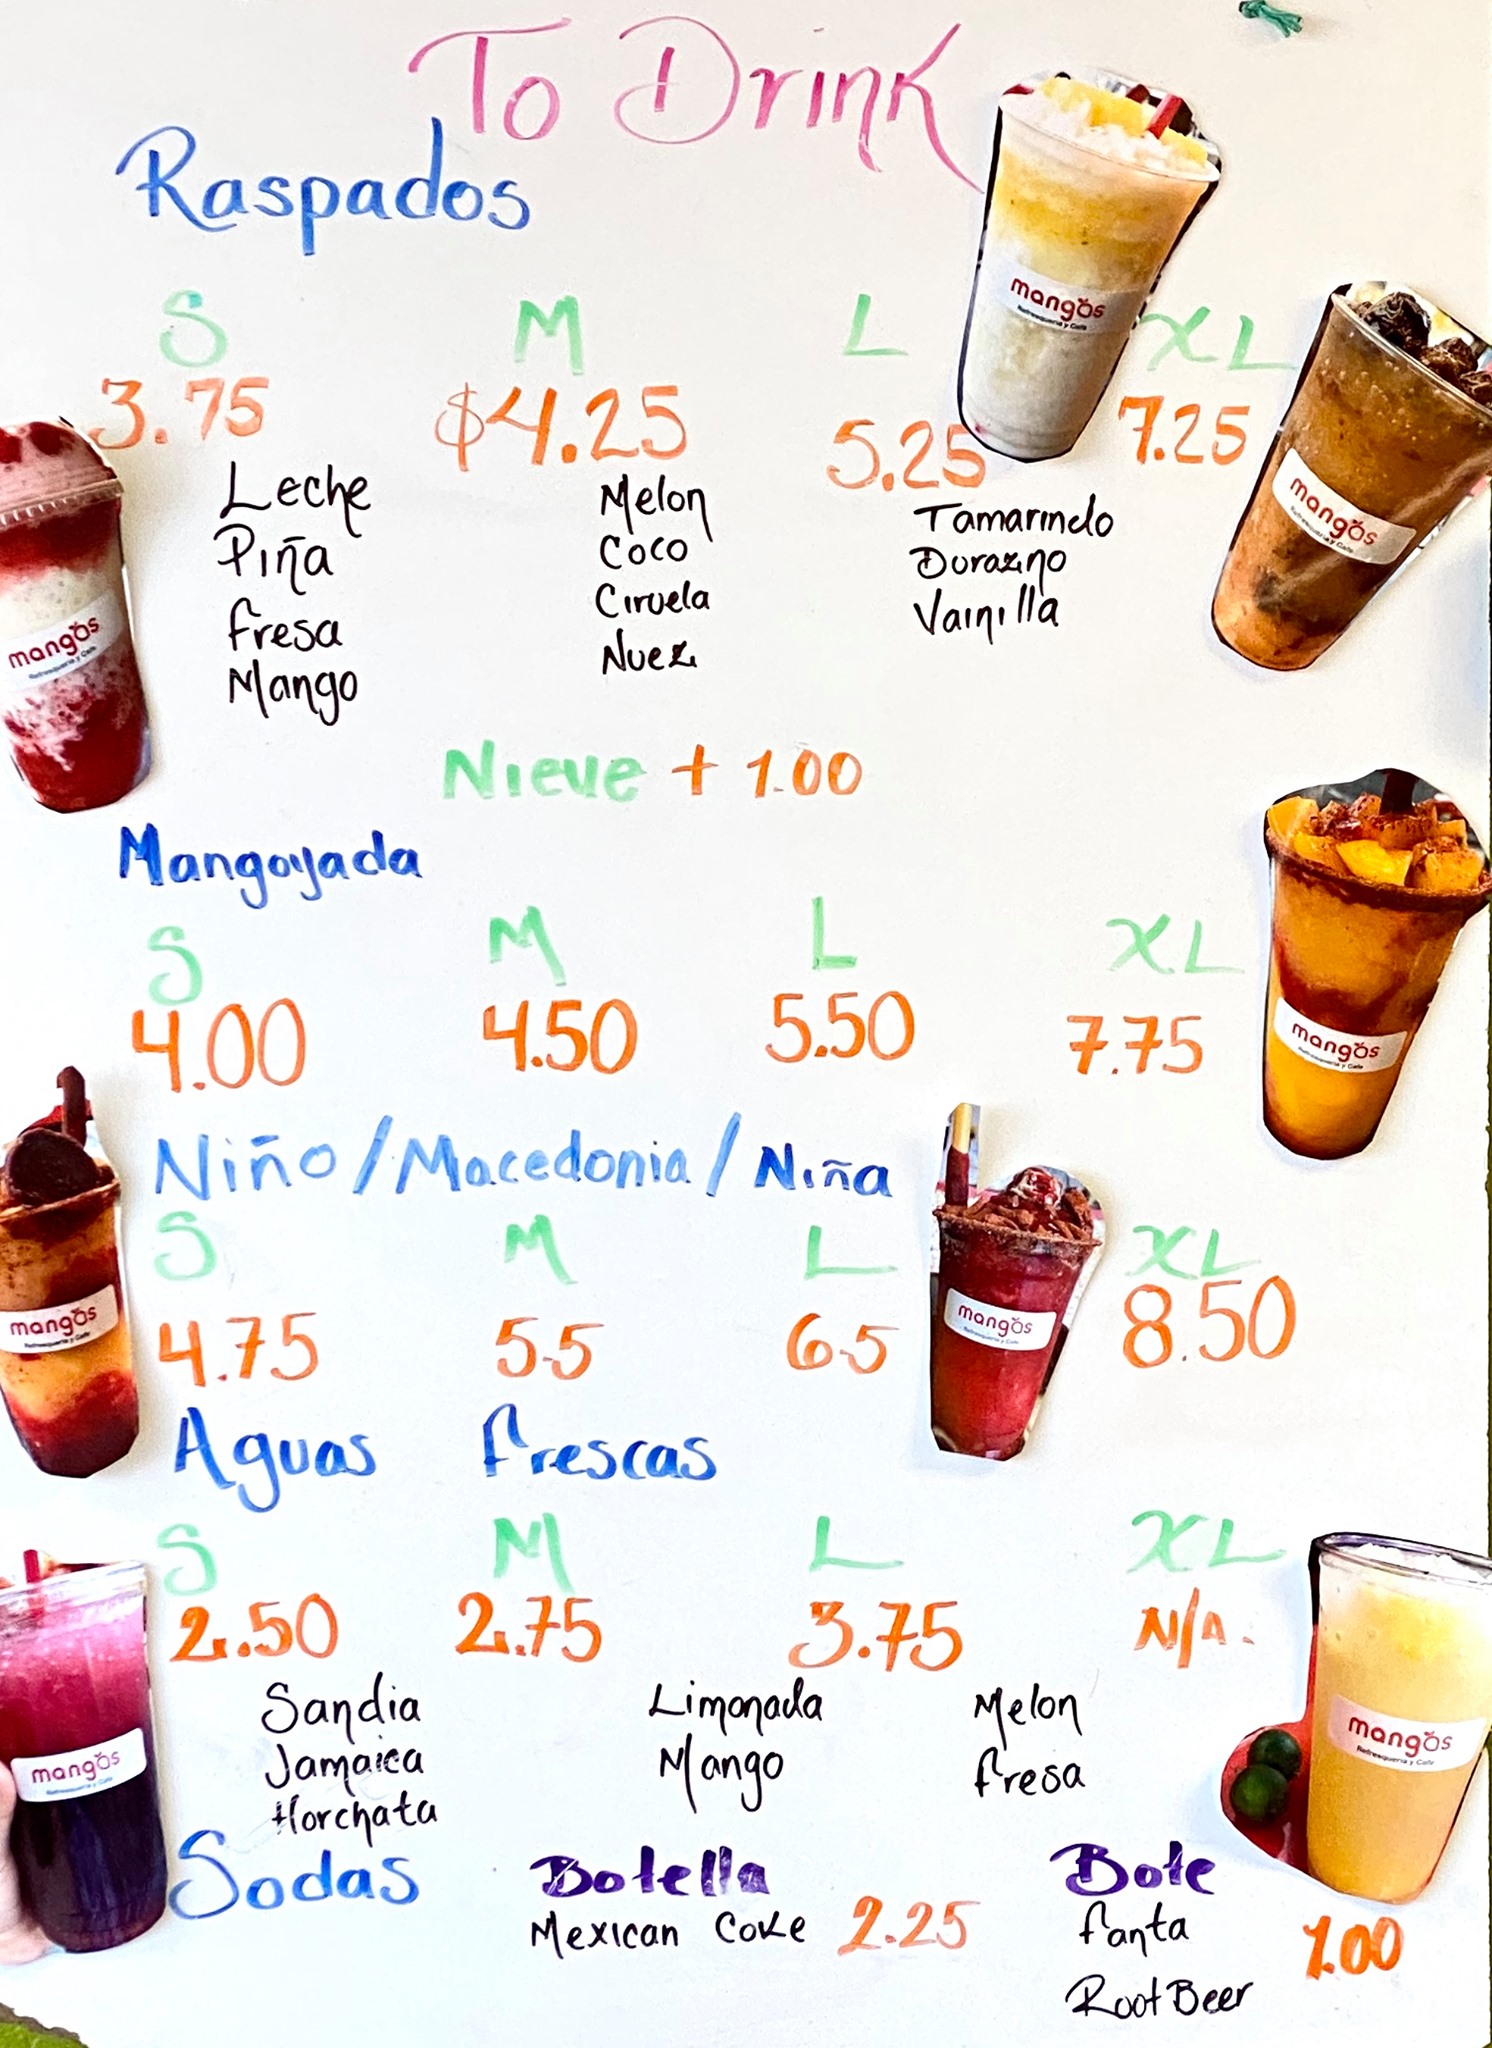 To Drink
Raspados
S M L XL
3.75 $4.25 5.25 7.25
Leche Melon Tamarindo
Piña Coco Durazno
Fresa Ciruela Vainilla
Mango Nuez
Nieve + 1.00
Mangoyada
S M L XL
4.00 4.50 5.50 7.75
Niño / Macedonia / Niña
S M L XL
4.75 5.5 6.5 8.50
Aguas Frescas
S M L XL
2.50 2.75 3.75 N/A.
Sandia Limonada Melon
Jamaica Mango Fresa
Horchata
Sodas Botella Bote
Mexican Coke 2.25 Fanta 1.00
Root Beer
mangos
Refresqueria y Cafe
mangos
Refresqueria y Cafe
mangos
Refresqueria y Cafe
mangos
Refresqueria y Cafe
mangos
Refresqueria y Cafe
mangos
Refresqueria y Cafe
mangos
Refresqueria y Cafe
mangos
Refresqueria y Cafe